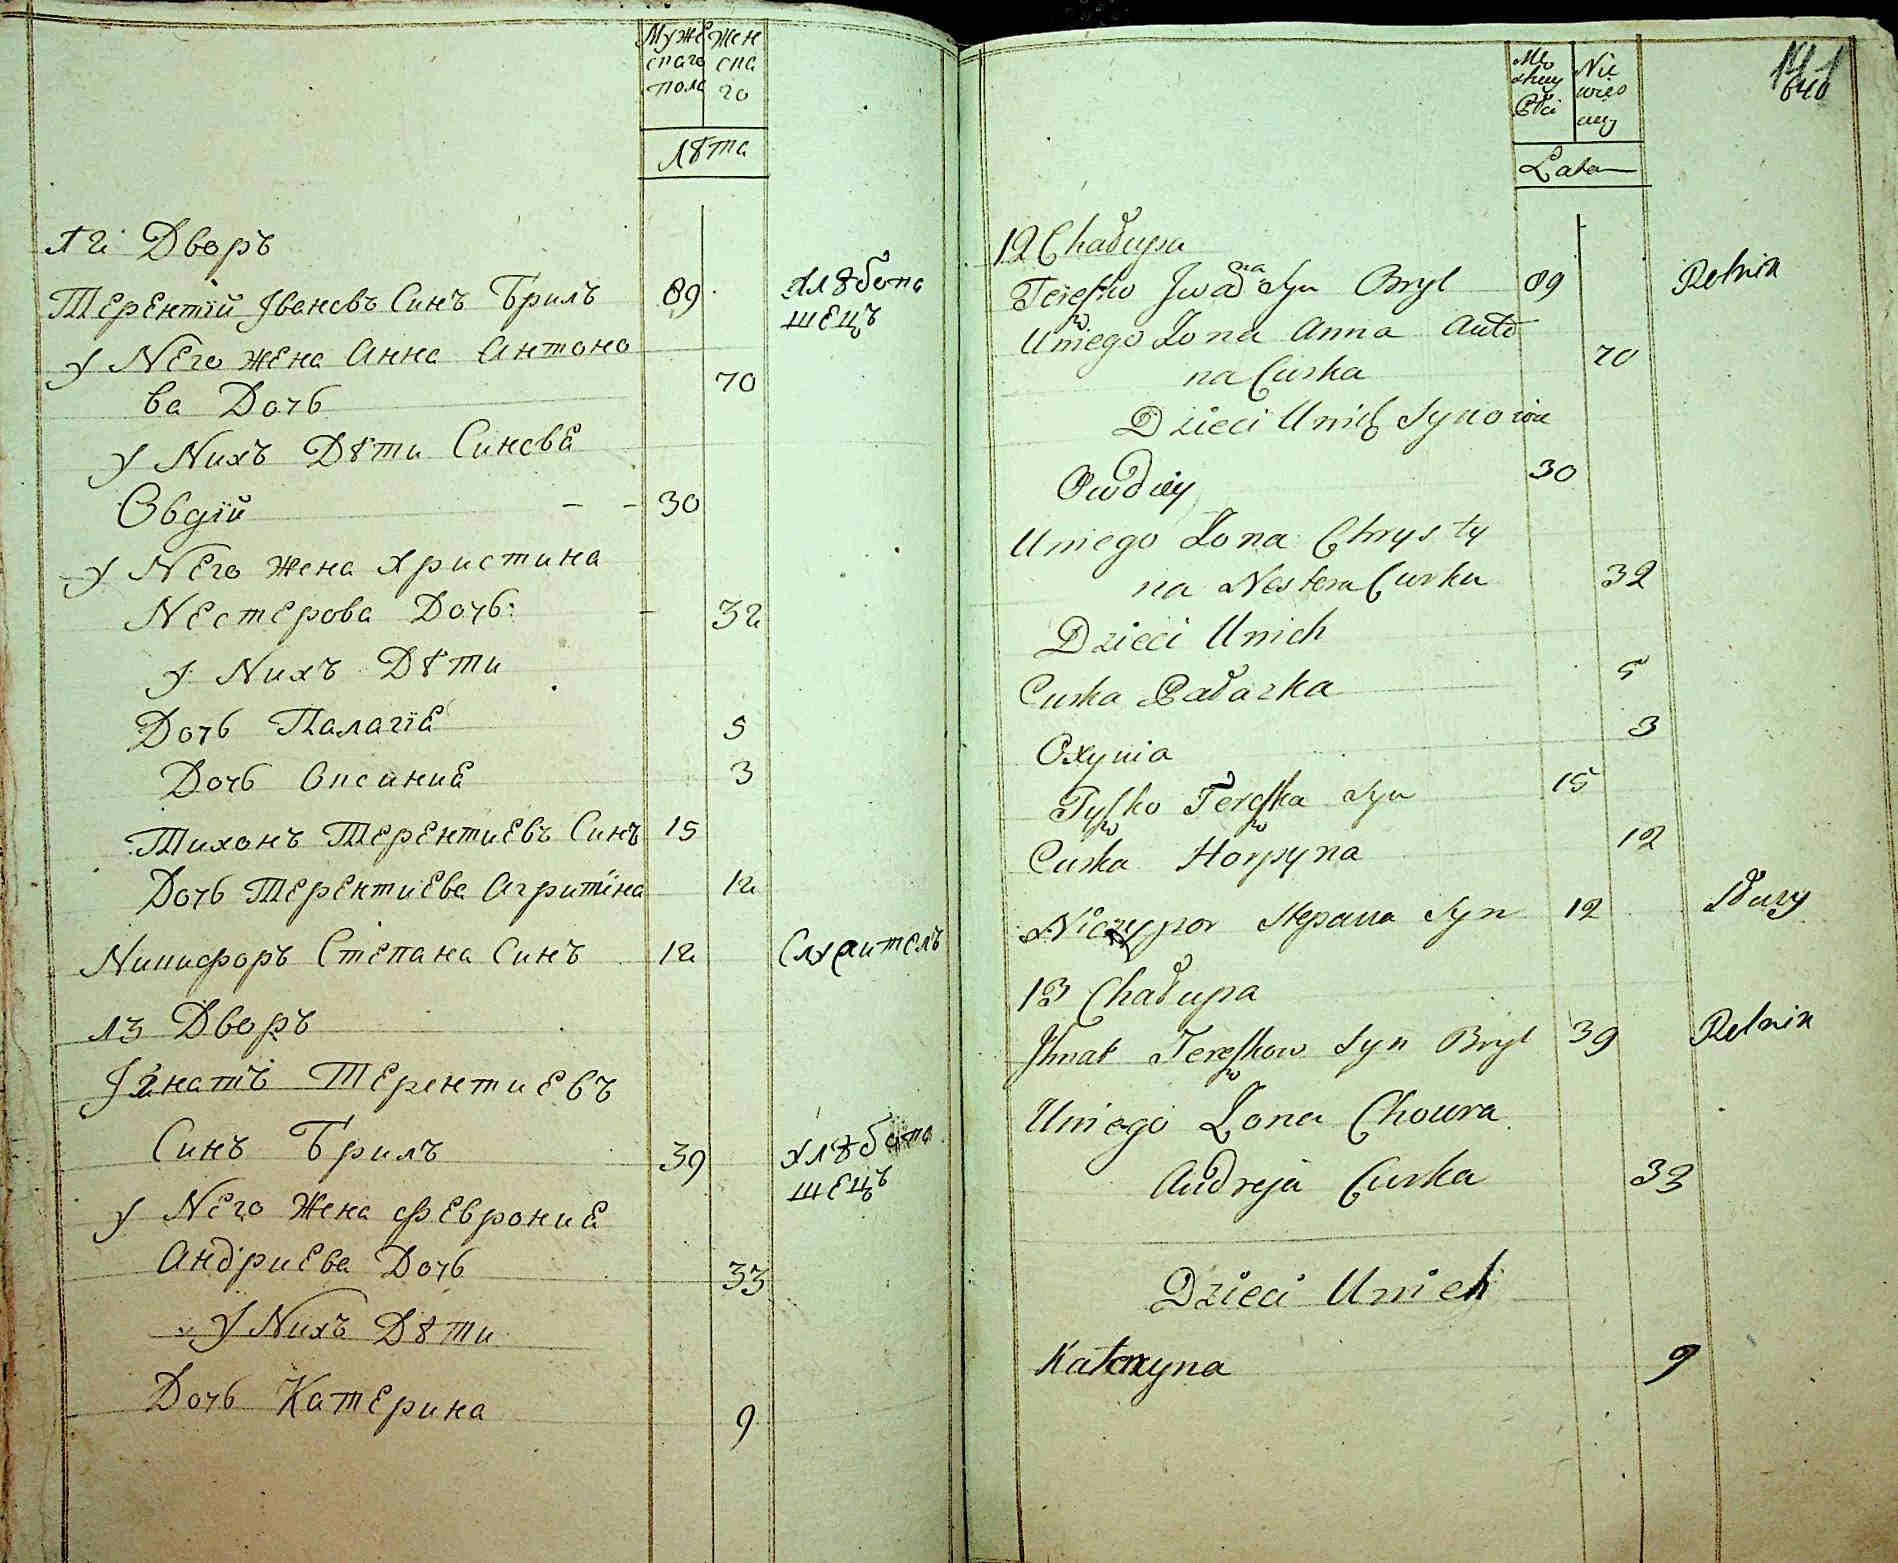 Мужескаго пола
Женскаго
Лѣта
12 Дворъ
Терентiй Iвановъ Синъ Брилъ 89 Хлѣбопашецъ
у Него жена Анна Антоно
ва Дочь 70
у Нихъ Дѣти Синовя
Овдiй - - 30
у Него жена Христина
Нестерова Дочь - 32
у Нихъ Дѣти
Дочь Палагiя 5
Дочь Оксиния 3
Тихонъ Терентиевъ Синъ 15
Дочь Терентиева Агрипiна 12
Никифоръ Степана Синъ 12 Служитель
13 Дворъ
Iгнатъ Терентиевъ
Синъ Брилъ 39 Хлѣбопашецъ
у Него Жена Феврония
Андриева Дочь 33
у Нихъ Дѣти
Дочь Катерина 9
Męzkiey Płci
Niewiesciey
Lata
12 Chałupa
Tereszko Jwana Syn Bryl 89 Rolnik
Uniego Zona Anna Anto
na Curka 70
Dzieci Unich Synowie
Owdiy 30
Uniego Zona Chrysty
na Nestera Curka 32
Dzieci Unich
Curka Pałazka 5
Oxynia 3
Tyszko Tereszka Syn 15
Curka Horpyna 12
Niczypor Stepana Syn 12 Słuzy
13 Chałupa
Jhnat Tereszkow Syn Bryl 39 Rolnik
Uniego Zona Chowra
Andreja Curka 33
Dzieci Unich
Katerzyna 9